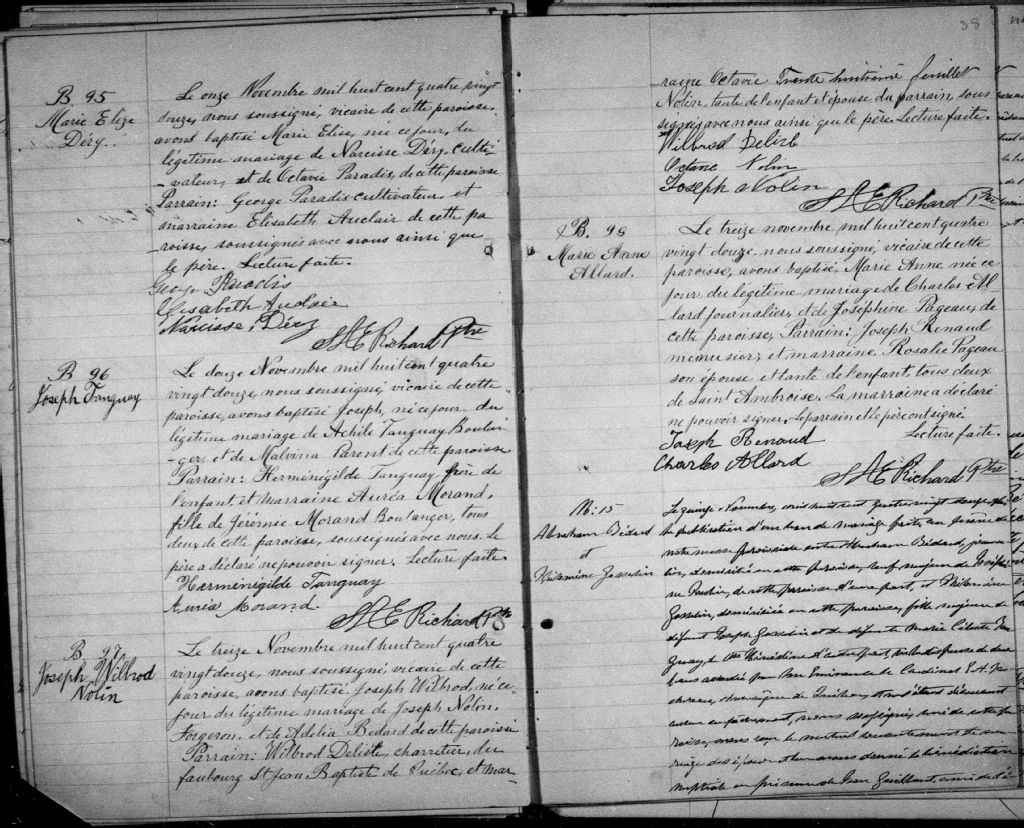 B. 95
Marie Elize
Déry.
Le onze Novembre mil huit cent quatre vingt
douze, nous soussigné, vicaire de cette paroisse,
avons baptisé Marie Elise, née ce jour, du
légitime mariage de Narcisse Déry, culti-
-vateur, et de Octavie Paradis, de cette paroisse
Parrain: George Paradis cultivateur, et
marraine Elisabeth Auclair de cette pa-
roisse, soussignés avec nous ainsi que
le père. Lecture faite.
George Paradis
Elisabeth Auclair
Narcisse Déry
Richard Ptre
B 96
Joseph Tanguay
Le douze Novembre mil huit cent quatre
vingt douze, nous soussigné, vicaire de cette
paroisse, avons baptisé Joseph, né ce jour du
légitime mariage de Achile Tanguay Boulan-
ger, et de Malvina Parent de cette paroisse
Parrain: Herménégilde Tanguay frère de
l'enfant et marraine Auréa Morand,
fille de Jérémie Morand Boulanger, tous
deux de cette paroisse, soussignés avec nous. Le
père a déclaré ne pouvoir signer. Lecture faite
Herménégilde Tanguay
Auréa Morand
Richard Ptre
B. 97
Joseph Wilbrod
Nolin
Le treize Novembre mil huit cent quatre
vingt douze, nous soussigné, vicaire de cette
paroisse, avons baptisé Joseph Wilbrod, né ce
jour du légitime mariage de Joseph Nolin,
Forgeron, et de Adelia Bedard de cette paroisse
Parrain: Wilbrod Delisle, charretier, du
faubourg St Jean Baptiste de Québec, et mar-
38
raine Octavie Trente huitième feuillet
Nolin, tante de l'enfant et épouse du parrain, sous-
signés avec nous ainsi que le père. Lecture faite.
Wilbrod Delisle
Octavie Nolin
Joseph Nolin
Richard Ptre
B. 98
Marie Anne
Allard.
Le treize novembre mil huit cent quatre
vingt douze, nous soussigné, vicaire de cette
paroisse, avons baptisé, Marie Anne, née ce
jour du légitime mariage de Charles Al
lard journalier, et de Joséphine Pageau, de
cette paroisse, Parrain: Joseph Renaud
menuisier, et marraine Rosalie Pageau
son épouse et tante de l'enfant, tous deux
de Saint Ambroise. La marraine a déclaré
ne pouvoir signer. Le parrain et le père ont signé.
Lecture faite.
Joseph Renaud
Charles Allard
Richard Ptre
M: 15
Abraham Bédard
et
Philomène Gosselin
Le quinze Novembre, mil huit cent quatre vingt douze,
la publication d'un ban de mariage faite au prône de
notre messe paroissiale entre Abraham Bédard,
domicilié en cette paroisse, veuf majeur de
de cette paroisse d'une part, et Philomène
Gosselin, domiciliée en cette paroisse, fille majeure de
défunt Joseph Gosselin et de défunte Marie Céleste
d'autre part, dispense de deux
bans accordée par Son Eminence le Cardinal E. A. Tas-
chereau, Archevêque de Québec, et ne s'étant découvert
aucun empêchement, nous soussigné, curé de cette pa-
roisse, avons reçu le mutuel consentement de ma-
riage des époux et leur avons donné la bénédiction
nuptiale en présence de